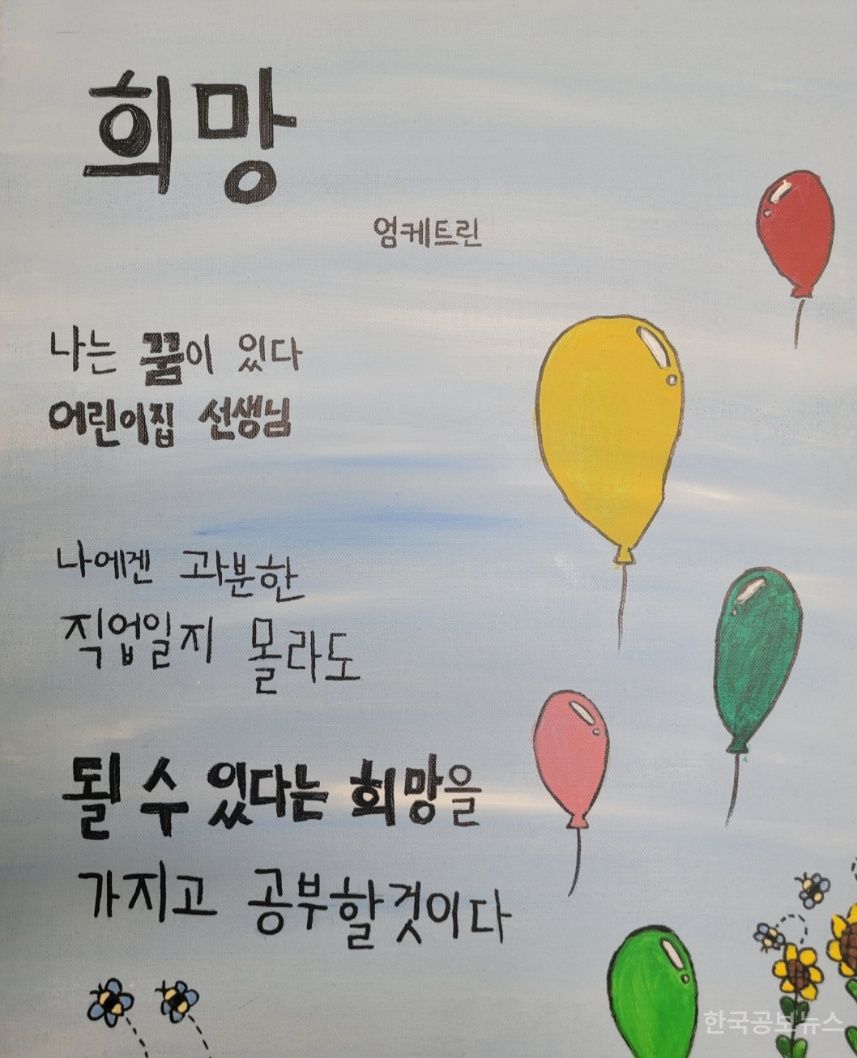 희망
엄케트린
나는 꿈이 있다
어린이집 선생님
나에겐 과분한
직업일지 몰라도
될 수 있다는 희망을
가지고 공부할것이다
한국공보뉴스